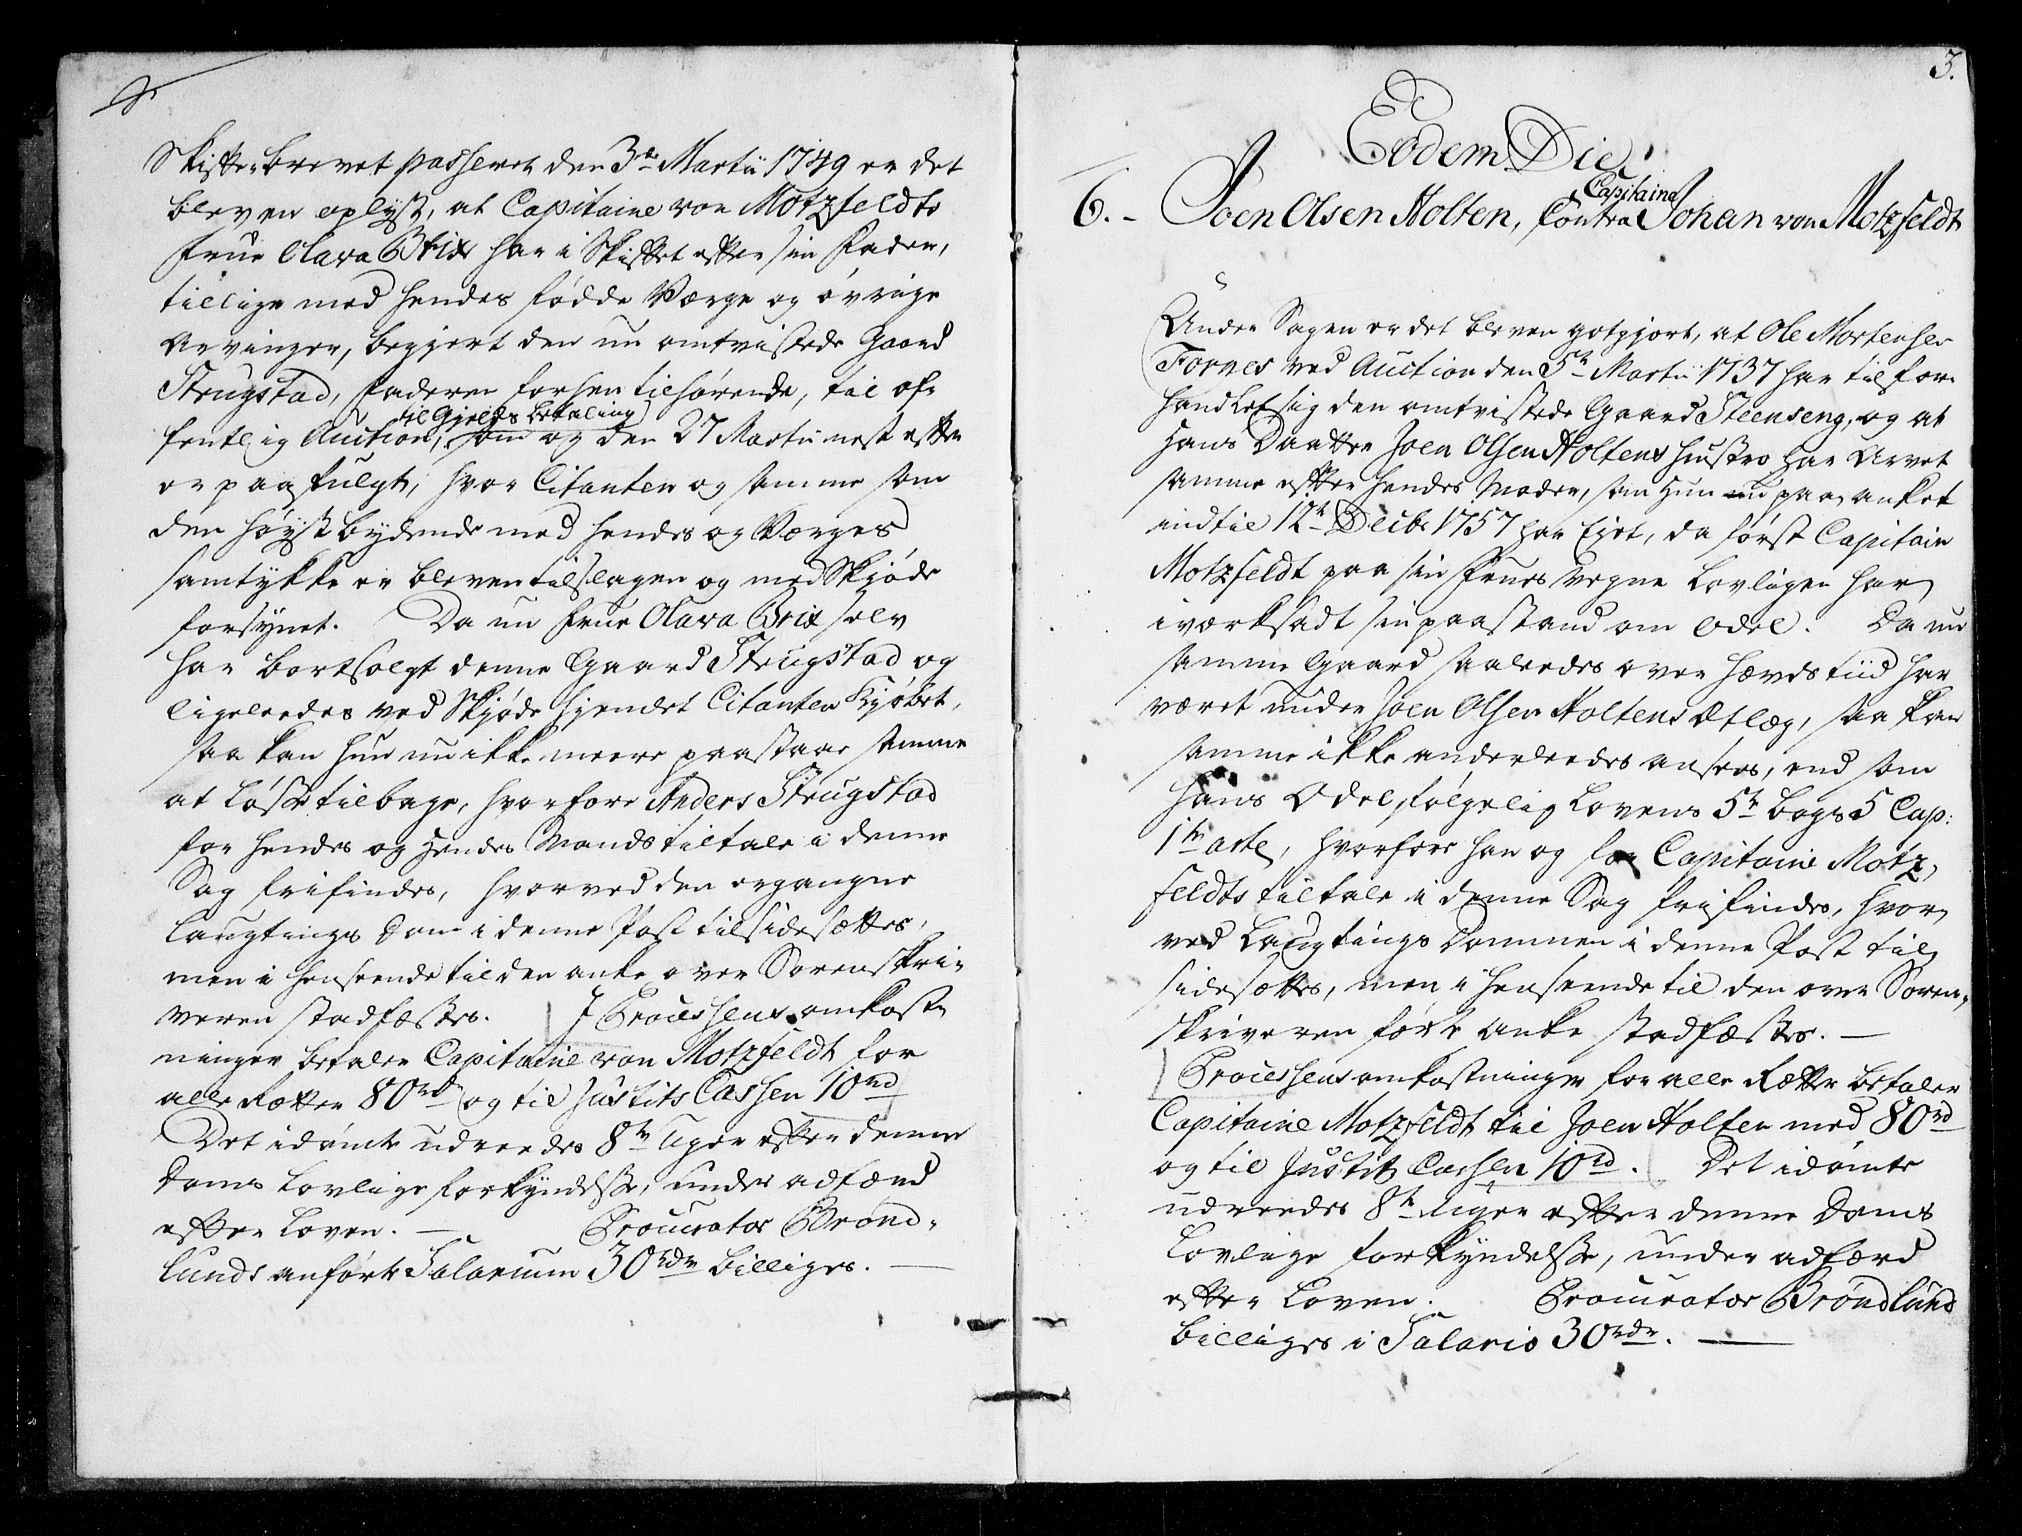 Skifte brevet passeret den 3de Martii 1749 er det
bleven oplyst, at Capitaine von Motzfeldts
Frue Clara Brix har i Skiftet efter sin Fader,
tillige med hendes fødde Værge og øvrige
Arvinger, begiert den nu omtvistede Gaard
Strugstad, Faderen forhen tilhørende, til of-
fentlig Auction, som og den 27 Martii nest efter
til Gjelds Betaling
er paafulgt, hvor Citanten og samme som
den høystbydende med hendes og Værges
samtykke er bleven tilslagen og med Skjøde
forsynet. Da nu Frue Clara Brix selv
har bortsolgt denne Gaard Strugstad og
ligeledes ved Skjøde hjemlet Citanten Kjøbet,
saa kan hun nu ikke meere paastaae samme
at løsse tilbage, hvorfore Anders Strugstad
for hendes og hendes Mands tiltale i denne
Sag frifindes, hvorved den ergangne
Laugtings Dom i denne Post tilsidesættes,
men i henseende til den anke over Sorenskri-
veren stadfæstes. I Processens omkost-
ninger betaler Capitaine von Motzfeldt for
alle Rætter 80rd og til Justits Cassen 10rd
Det idømte udreedes 8te uger efter denne
Doms Lovlige forkyndelsse, under adfærd
efter Loven. — Procurator Brønd-
lunds anførte Salarium 30rdr billiges. —
3.
Eodem Die
Capitaine
6. - Joen Olsen Holten, Contra Johan von Motzfeldt
Under Sagen er det bleven gotgjort, at Ole Mortensen
Fornes ved Auction den 5te Martii 1737 har tilfor-
handlet sig den omtvistede Gaard Steenseng, og at
hans Daatter Joen Olsen Holtens Hustro har Arvet
samme efter hendes Moder, som hun u paaanket
indtil 12te Decbr 1757 har Ejet, da først Capitain
Motzfeldt paa sin Frues Vegne Lovligen har
iværksadt sin paastand om Odel. Da nu
samme Gaard saaledes over Hævds tiid har
været under Joen Olsen Holtens Ætlæg, saa kan
samme ikke anderleedes ansees, end som
hans Odel, følgelig Lovens 5te bogs 5 Cap:
1te artl, hvorfore han og for Capitaine Motz-
feldts tiltale i denne Sag frifindes, hvor-
ved Laugtings Dommen i denne Post til-
sidesættes, men i henseende til den over Soren-
skriveren førte Anke stadfæstes. —
Processens omkostninger for alle Rætter betaler
Capitaine Motzfeldt til Joen Holten med 80rd
og til Justitz Cassen 10rd. Det idømte
udreedes 8te uger efter denne Doms
Lovlige forkyndelsse, under adfærd
efter Loven. Procurator Brøndlund
billiges i Salario 30rdr. —